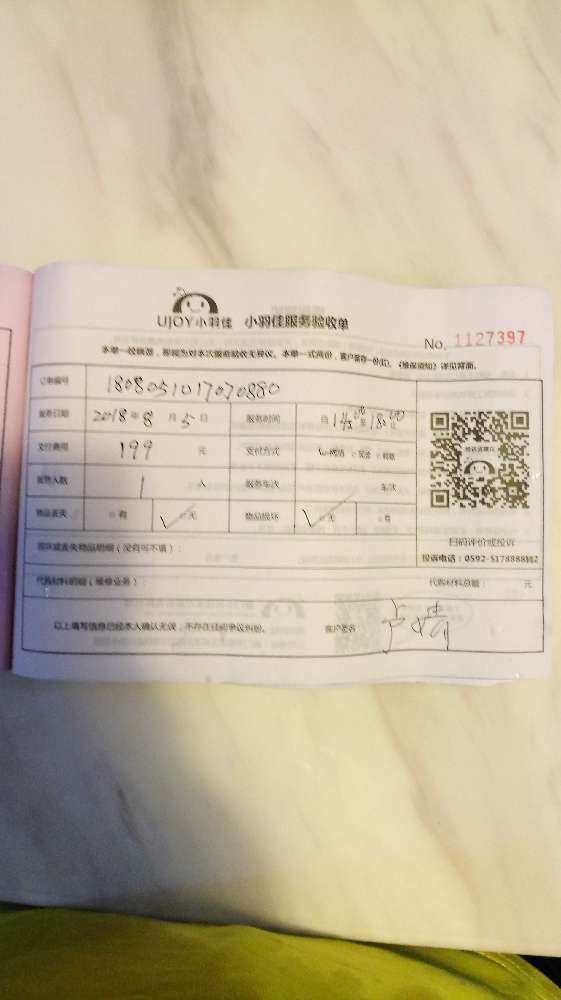 UJOY小羽佳 小羽佳服务验收单
No. 1127397
本单一经确签，即视为对本次服务验收无异议。本单一式两份，客户留存一份(红)。《维保须知》详见背面。
订单编号 1808051017070880
服务日期 2018年8月5日 服务时间
交付费用 199 元 支付方式 网络 现金
服务人数 1 人 服务车次 车次
物品丢失 有 无 物品损坏 无 有
损坏或丢失物品明细（没有可不填）：
扫码评价或投诉
投诉电话：0592-5178888转2
代购材料明细（维修业务）： 代购材料总额： 元
以上填写信息已经本人确认无误，不存在任何争议纠纷。 客户签名 卢婧